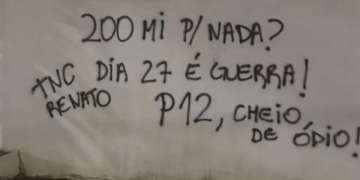 200 Mi P/ NADA?
TNC DiA 27 É GUERRA!
RENATO P12, CHEiO
DE ÓDiO!